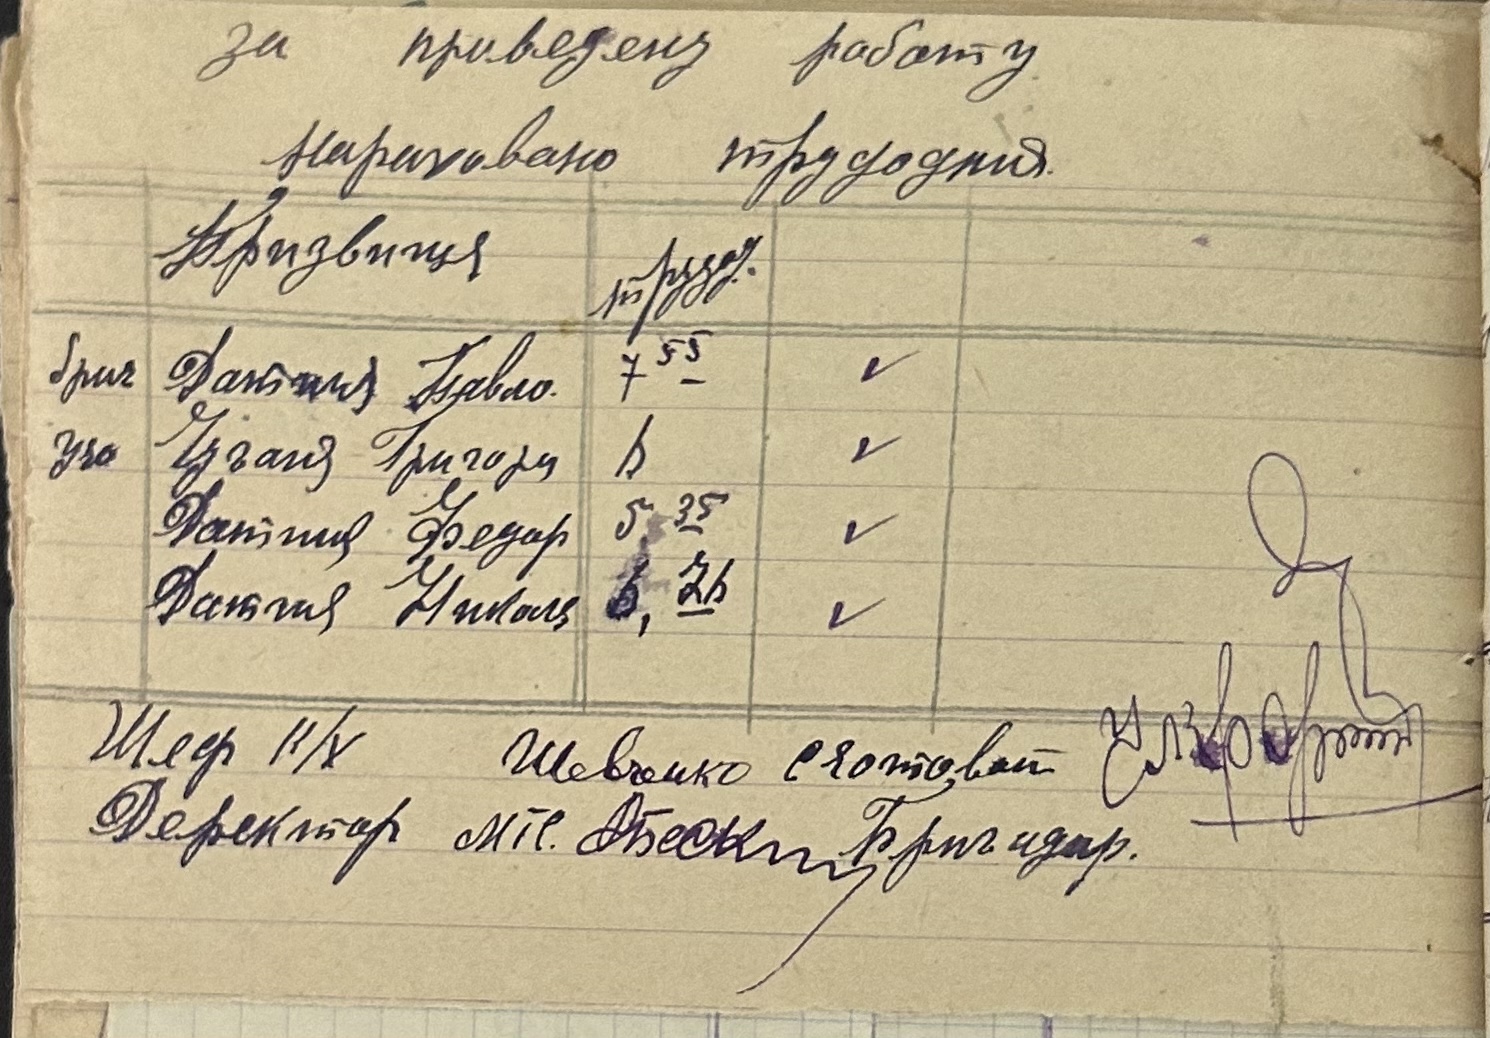 за проведену работу
нараховано трудодния.
Призвища трудод.
бриг Дактиля Павло. 7 55
учо Цъганя Григорц 6
Дактиля Федар 5, 35
Дактиля Николц 6, 26
Шеф к/х Шевченко счотовот
Деректар мтс. Бригадир.